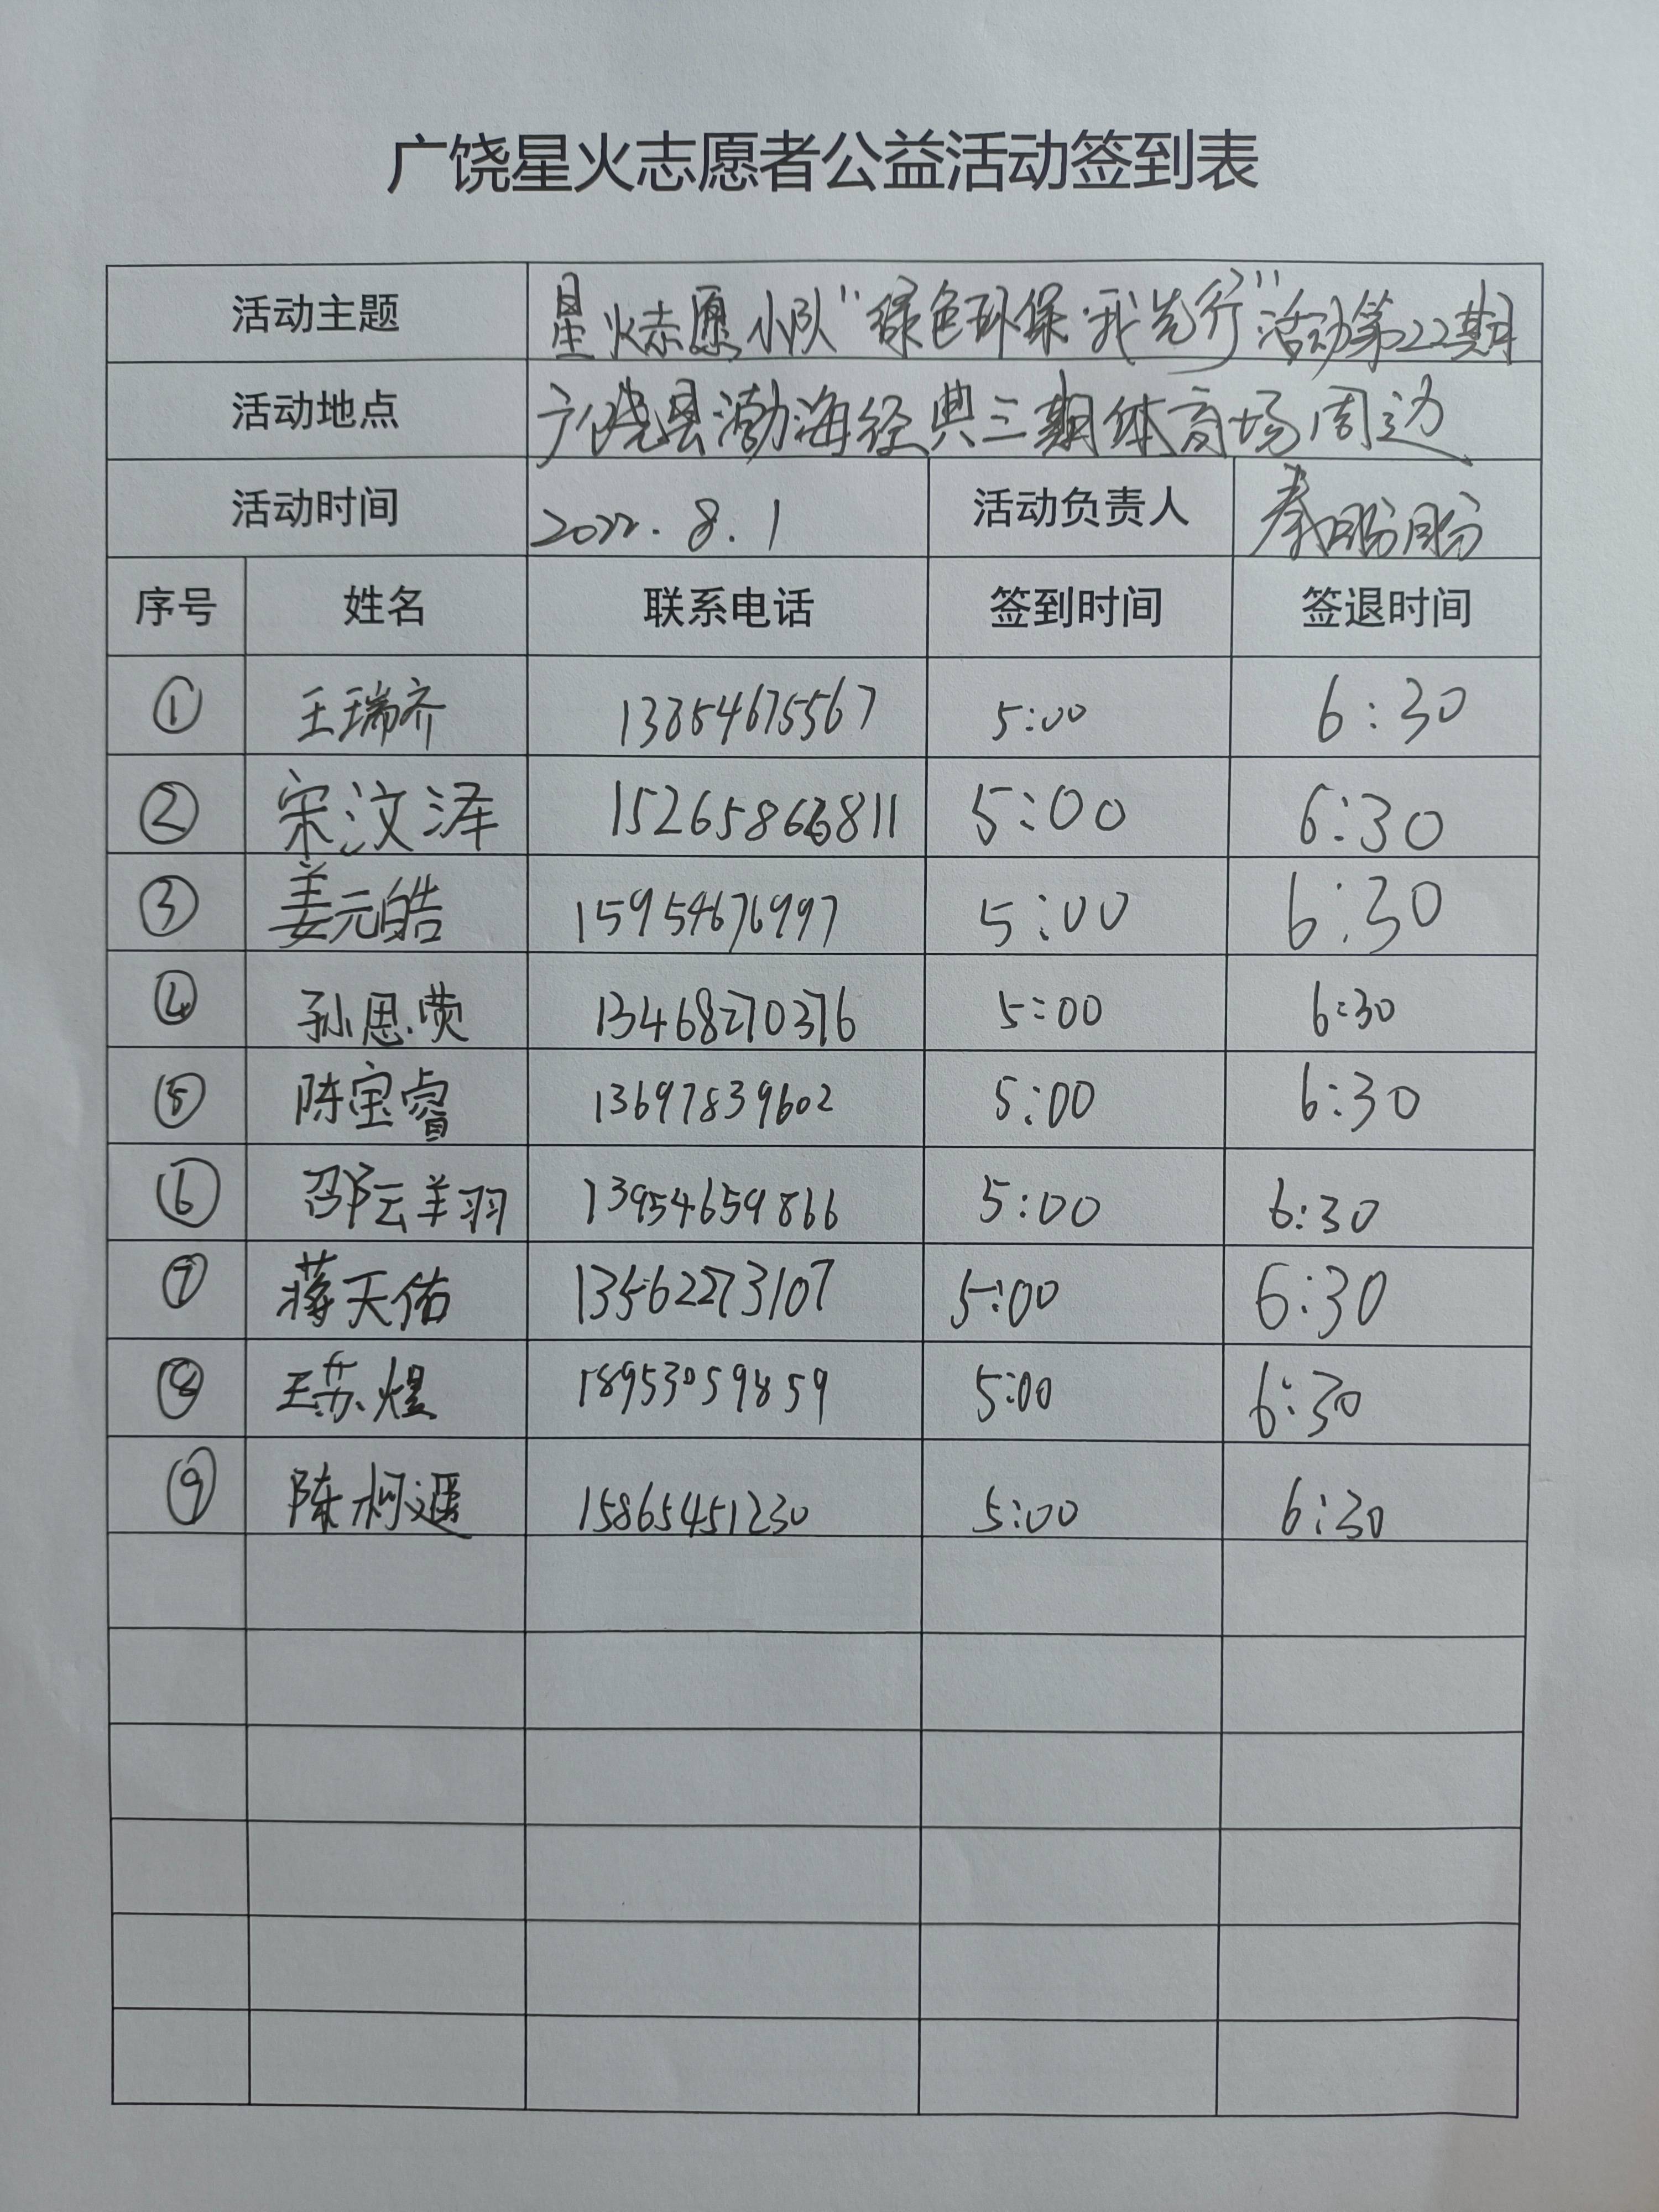 广饶星火志愿者公益活动签到表
活动主题 星火志愿小队"绿色环保·我先行"活动第22期
活动地点 广饶县渤海经典三期体育场周边
活动时间 2022.8.1 活动负责人 秦盼盼
序号 姓名 联系电话 签到时间 签退时间
① 王瑞齐 13854675567 5:00 6:30
② 宋汶泽 15265866811 5:00 6:30
③ 姜元皓 15954676997 5:00 6:30
④ 孙思荧 13468270376 5:00 6:30
⑤ 陈宝睿 13697839602 5:00 6:30
⑥ 邵云羊羽 13954659866 5:00 6:30
⑦ 蒋天佑 13562273107 5:00 6:30
⑧ 王苏煜 18953059859 5:00 6:30
⑨ 陈柯 15865451230 5:00 6:30